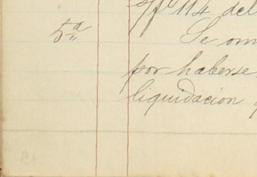 fº 114 del
5ª Se om
por haberse
liquidacion